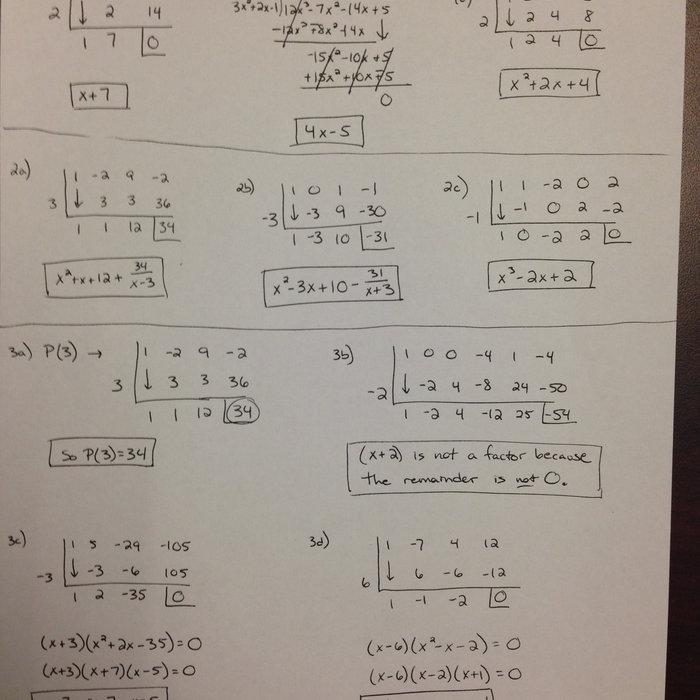 2 ↓ 2 14
1 7 0
x+7
3x²+2x-1)12x³-7x²-14x+5
-12x³+8x²-4x ↓
-15x²-10x+5
+15x²+10x-5
0
4x-5
2 ↓ 2 4 8
1 2 4 0
x²+2x+4
2a)
1 -2 9 -2
3 ↓ 3 3 36
1 1 12 34
x²+x+12+ 34/x-3
2b)
1 0 1 -1
-3 ↓ -3 9 -30
1 -3 10 -31
x²-3x+10- 31/x+3
2c)
1 1 -2 0 2
-1 ↓ -1 0 2 -2
1 0 -2 2 0
x³-2x+2
3a) P(3) →
1 -2 9 -2
3 ↓ 3 3 36
1 1 12 34
So P(3)=34
3b)
1 0 0 -4 1 -4
-2 ↓ -2 4 -8 24 -50
1 -2 4 -12 25 -54
(x+2) is not a factor because
the remainder is not 0.
3c)
1 5 -29 -105
-3 ↓ -3 -6 105
1 2 -35 0
(x+3)(x²+2x-35)=0
(x+3)(x+7)(x-5)=0
3d)
1 -7 4 12
6 ↓ 6 -6 -12
1 -1 -2 0
(x-6)(x²-x-2)=0
(x-6)(x-2)(x+1)=0